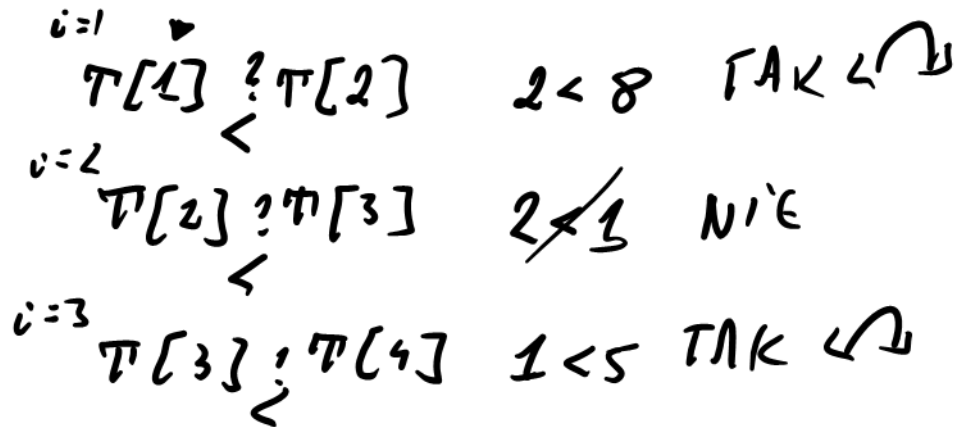 i=1
T[1] ? T[2] 2 < 8 TAK
<
i=2
T[2] ? T[3] 2 < 1 NIE
<
i=3
T[3] ? T[4] 1 < 5 TAK
<